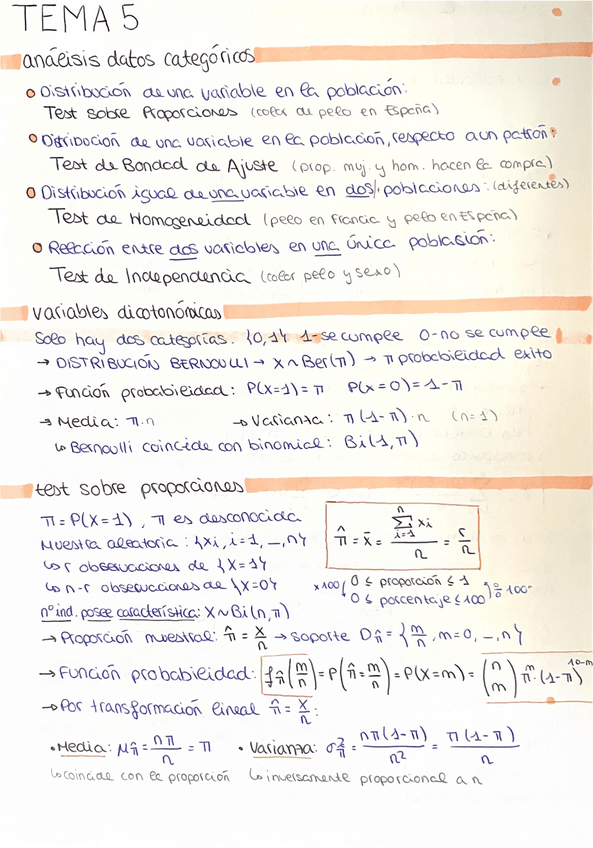 TEMA 5
análisis datos categóricos
Distribución de una variable en la población:
Test sobre Proporciones (color de pelo en España)
Distribución de una variable en la población, respecto a un patrón:
Test de Bondad de Ajuste (prop. muj. y hom. hacen la compra)
Distribución igual de una variable en dos poblaciones: (diferentes)
Test de Homogeneidad (pelo en Francia y pelo en España)
Relación entre dos variables en una única poblasión:
Test de Independencia (color pelo y sexo)
variables dicotonómicas
Solo hay dos categorías: {0,1} 1-se cumple 0-no se cumple
→ DISTRIBUCIÓN BERNOULLI → X ~ Ber(π) → π probabilidad exito
→ Función probabilidad: P(X=1) = π P(X=0) = 1-π
→ Media: π·n → Varianza: π(1-π)·n (n=1)
↳ Bernoulli coincide con binomial: Bi(1,π)
test sobre proporciones
π = P(X=1), π es desconocida
Muestra aleatoria: {xi, i=1, _, n}
↳ r observaciones de {X=1}
↳ n-r observaciones de {X=0}
π̂ = x̄ = (∑ i=1 n xi)/n = r/n
x100 ( 0 ≤ proporción ≤ 1
0 ≤ porcentaje ≤ 100 ) % 100
nº ind. posee característica: X ~ Bi(n,π)
→ Proporción muestral: π̂ = x/n → soporte Dπ̂ = {m/n, m=0, _, n}
→ Función probabilidad: fπ̂(m/n) = P(π̂ = m/n) = P(X=m) = (n m) π̂^m · (1-π)^10-m
→ Por transformación lineal π̂ = x/n:
• Media: μπ̂ = nπ/n = π • Varianza: σ²π̂ = nπ(1-π)/n² = π(1-π)/n
↳ coincide con la proporción ↳ inversamente proporcional a n